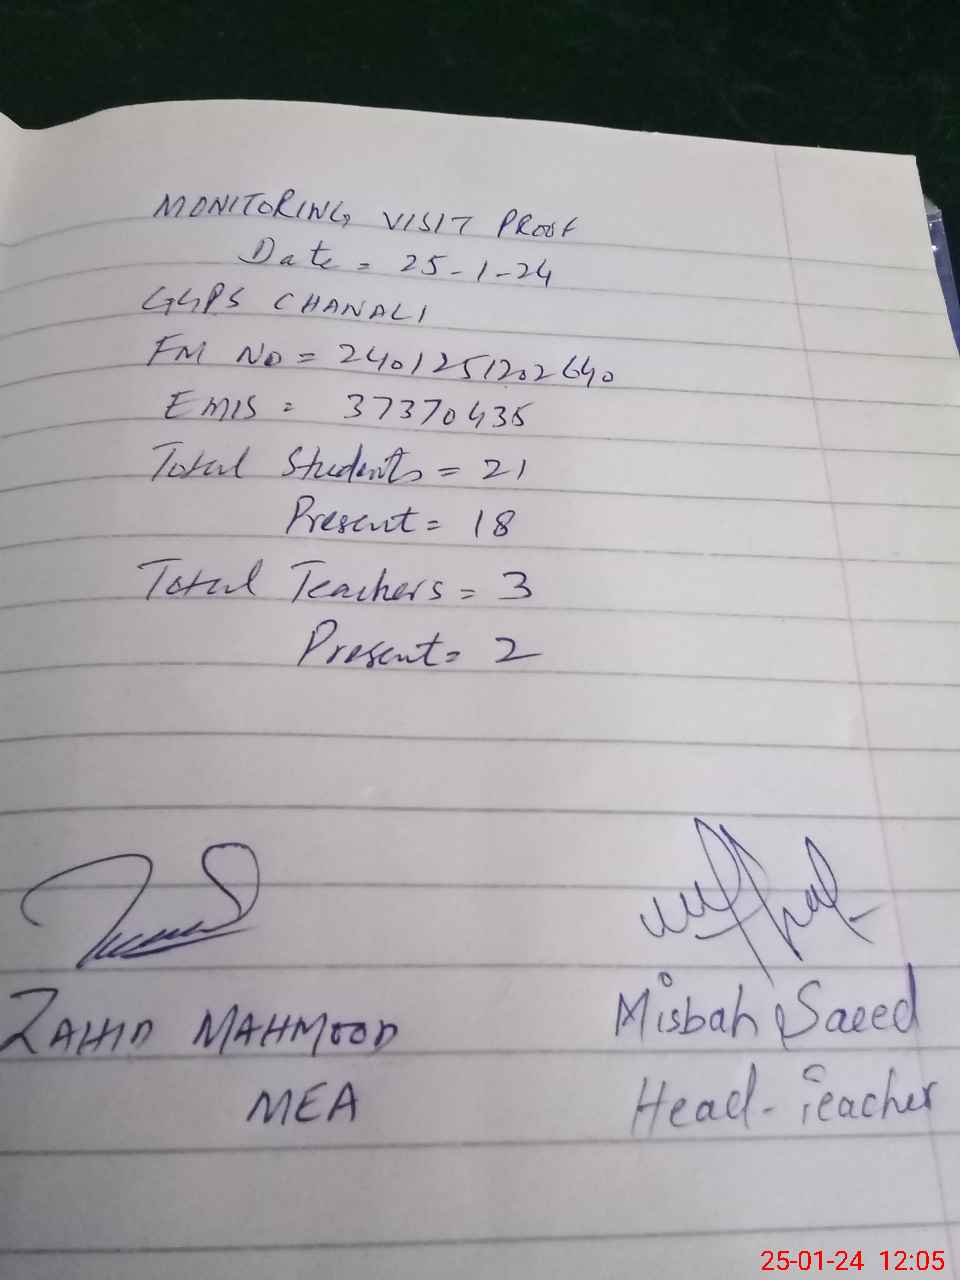 MONITORING VISIT PROOF
Date = 25-1-24
GGPS CHANALI
FM NO = 2401251202640
EMIS = 37370435
Total Students = 21
Present = 18
Total Teachers = 3
Present = 2
ZAHID MAHMOOD
MEA
Misbah Saeed
Head-Teacher
25-01-24 12:05